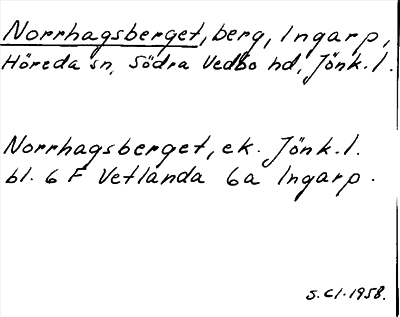 Norrhagsberget, berg, Ingarp,
Höreda sn, Södra Vedbo hd, Jönk. l.
Norrhagsberget, ek. Jönk. l.
bl. 6 F Vetlanda 6a Ingarp.
S. Cl. 1958.